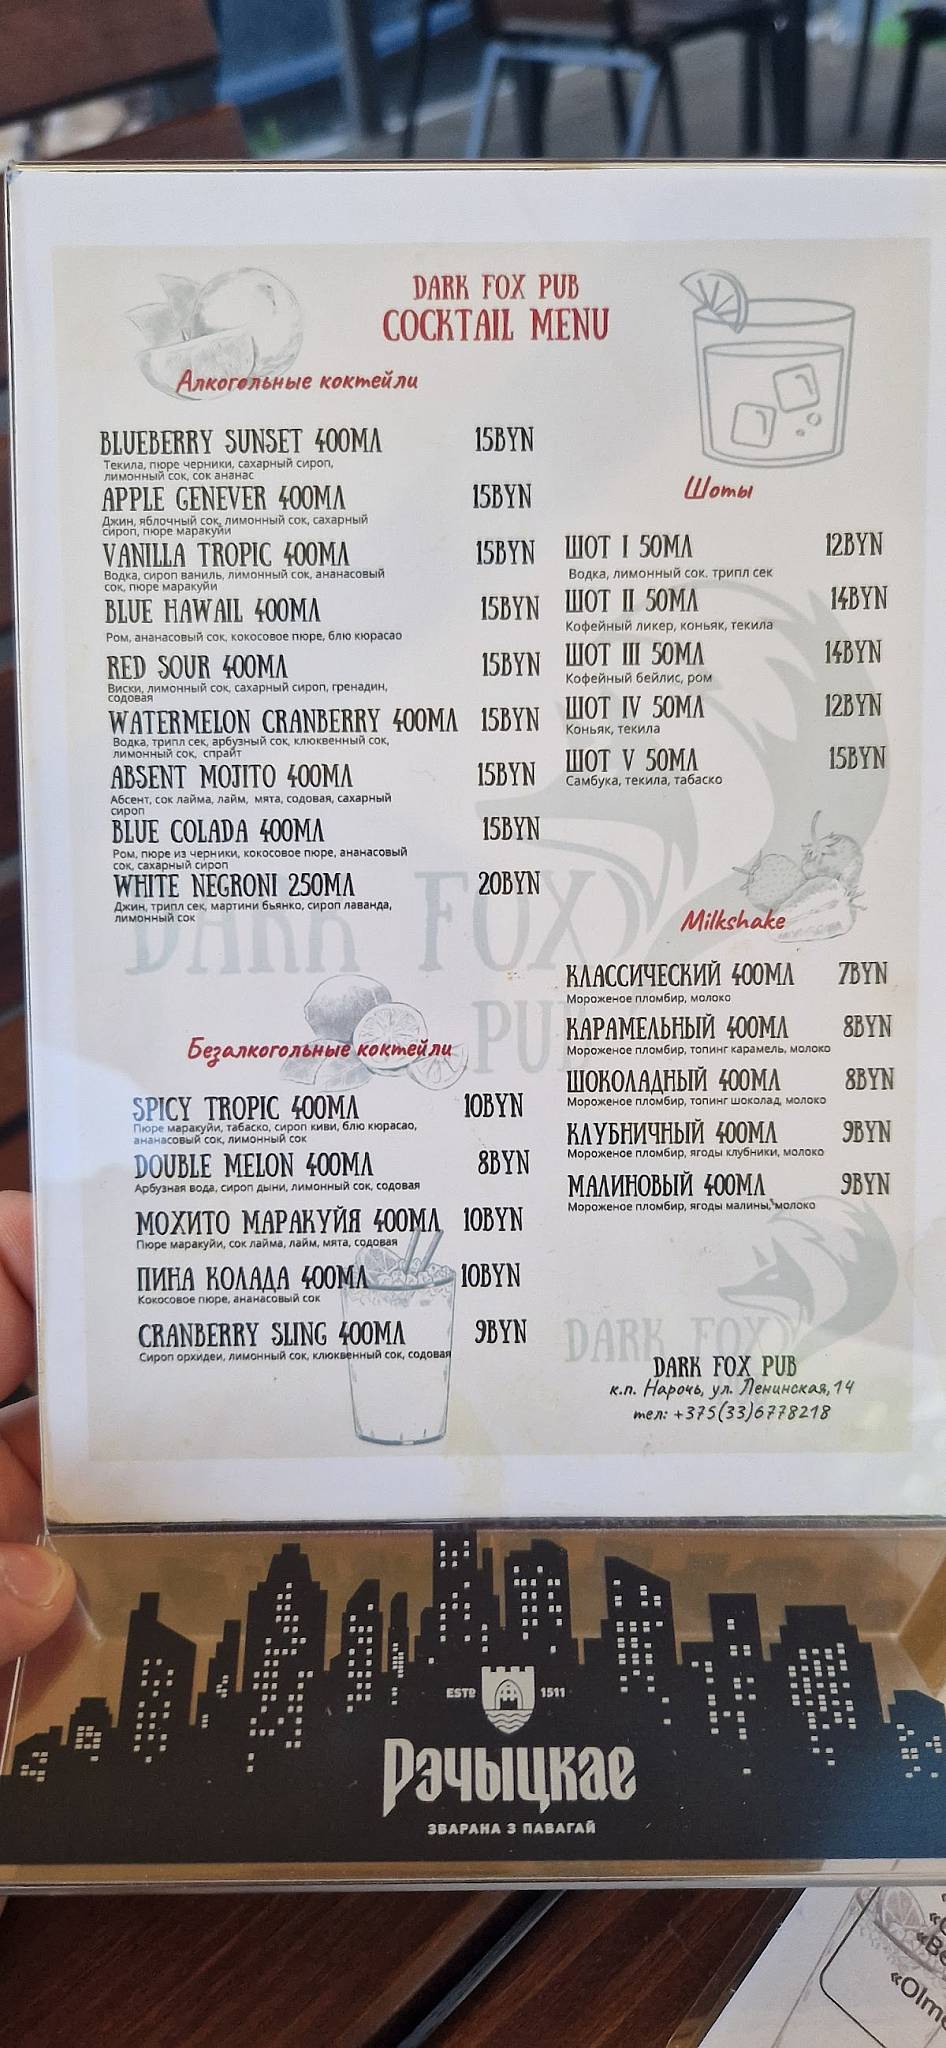 DARK FOX PUB
COCKTAIL MENU
Алкогольные коктейли
BLUEBERRY SUNSET 400МЛ 15BYN
Текила, пюре черники, сахарный сироп,
лимонный сок, сок ананас
APPLE GENEVER 400МЛ 15BYN
Джин, яблочный сок, лимонный сок, сахарный
сироп, пюре маракуйи
VANILLA TROPIC 400МЛ 15BYN
Водка, сироп ваниль, лимонный сок, ананасовый
сок, пюре маракуйи
BLUE HAWAIL 400МЛ 15BYN
Ром, ананасовый сок, кокосовое пюре, блю кюрасао
RED SOUR 400МЛ 15BYN
Виски, лимонный сок, сахарный сироп, гренадин,
содовая
WATERMELON CRANBERRY 400МЛ 15BYN
Водка, трипл сек, арбузный сок, клюквенный сок,
лимонный сок, спрайт
ABSENT MOJITO 400МЛ 15BYN
Абсент, сок лайма, лайм, мята, содовая, сахарный
сироп
BLUE COLADA 400МЛ 15BYN
Ром, пюре из черники, кокосовое пюре, ананасовый
сок, сахарный сироп
WHITE NEGRONI 250МЛ 20BYN
Джин, трипл сек, мартини бьянко, сироп лаванда,
лимонный сок
DARK FOX
PUB
Безалкогольные коктейли
SPICY TROPIC 400МЛ 10BYN
Пюре маракуйи, табаско, сироп киви, блю кюрасао,
ананасовый сок, лимонный сок
DOUBLE MELON 400МЛ 8BYN
Арбузная вода, сироп дыни, лимонный сок, содовая
МОХИТО МАРАКУЙЯ 400МЛ 10BYN
Пюре маракуйи, сок лайма, лайм, мята, содовая
ПИНА КОЛАДА 400МЛ 10BYN
Кокосовое пюре, ананасовый сок
CRANBERRY SLING 400МЛ 9BYN
Сироп орхидеи, лимонный сок, клюквенный сок, содовая
Шоты
ШОТ I 50МЛ 12BYN
Водка, лимонный сок. трипл сек
ШОТ II 50МЛ 14BYN
Кофейный ликер, коньяк, текила
ШОТ III 50МЛ 14BYN
Кофейный бейлис, ром
ШОТ IV 50МЛ 12BYN
Коньяк, текила
ШОТ V 50МЛ 15BYN
Самбука, текила, табаско
Milkshake
КЛАССИЧЕСКИЙ 400МЛ 7BYN
Мороженое пломбир, молоко
КАРАМЕЛЬНЫЙ 400МЛ 8BYN
Мороженое пломбир, топинг карамель, молоко
ШОКОЛАДНЫЙ 400МЛ 8BYN
Мороженое пломбир, топинг шоколад, молоко
КЛУБНИЧНЫЙ 400МЛ 9BYN
Мороженое пломбир, ягоды клубники, молоко
МАЛИНОВЫЙ 400МЛ 9BYN
Мороженое пломбир, ягоды малины, молоко
DARK FOX
DARK FOX PUB
к.п. Нарочь, ул. Ленинская, 14
тел: +375(33)6778218
ESTD 1511
Рэчыцкае
ЗВАРАНА З ПАВАГАЙ